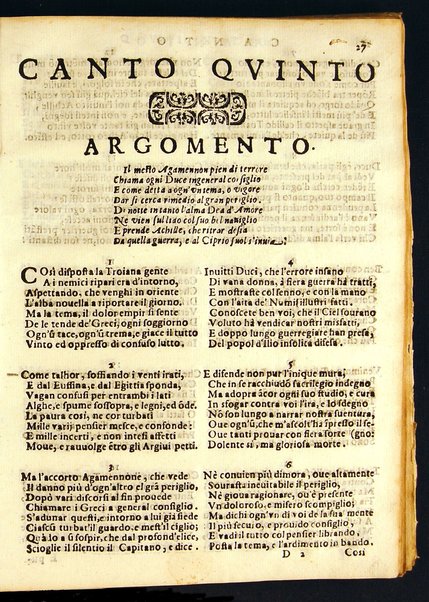 27
CANTO QVINTO
ARGOMENTO.
Il mesto Agamennon pien di terrore
Chiama ogni Duce in general consiglio
E come detta a ogn'un tema, o vigore
Dar si cerca rimedio al gran periglio.
Di notte intanto l'alma Dea d'Amore
Ne vien sul lito col suo bel naviglio
E prende Achille, che ritrar desia
Da quella guerra, e al Cipro suol s'inuia.
1
COsì disposta la Troiana gente
A i nemici ripari era d'intorno,
Aspettando, che venghi in oriente
L'alba nouella a riportare il giorno.
Ma la tema, il dolor empi si sente
De le tende de' Greci, ogni soggiorno
Ogn'ũ tace, ogn'ũ trema, e giace il tutto
Vinto ed oppresso di confuso lutto.
2
Come talhor, soffiando i venti irati,
E dal Eussina, e dal Egittia sponda,
Vagan confusi per entrambi i lati
Alghe, e spume sossopra, e legni, ed õde.
La paura così, ne cor turbati
Mille varij pensier mesce, e confonde:
E mille incerti, e non intesi affetti
Moue, e rauuolge ẽtro gli Argiui petti.
3
Ma l'accorto Agamennone, che vede
Il danno più d'ogn'altro el grã periglio,
Dopò vari discorsi al fin prouede
Chiamare i Greci a general consiglio.
S'adunar questi, e intorno a lui già siede
Ciascũ turbat'il guardo, e mest'il ciglio;
Quãdo ũ sospir, che dal profond'elice,
Scioglie il silentio il Capitano, e dice.
4
Inuitti Duci, che l'errore insano
Di vana donna, à fiera guerra ha tratti,
E mostraste col senno, e con la mano
Con l'aita de' Numi illustri fatti.
Conoscete ben voi, che il Ciel sourano
Voluto hà vendicar nostri misfatti,
E doppo lungo guerregiare han presa,
Del popol d'Ilio insolita difesa.
5
E difende non pur l'inique mura,
Che in se racchiudõ sacrilegio indegno
Ma adopra àcor ogni suo studio, e cura
In sfogar contra voi l'ira, e lo sdegno
Nõ son lungo a narrar nostra suentura,
Oue ogn'ũ, che m'ascolt'hà spresso il se-
Oue tanti prouar con fiera sorte (gno:
Dolente sì, ma gloriosa morte.
6
Nè conuien più dimora, oue altamente
Sourasta ineuitabile il periglio,
Nè gioua ragionare, ou'è presente
Vn doloroso, e misero scompiglio;
Ma dichi ogn'vn di voi de la sua mente
Il più secuio, e prouido consiglio,
E vadi il tutto col pensier librando,
Posta la tema, e l'ardimento in bando.
D 2 Così